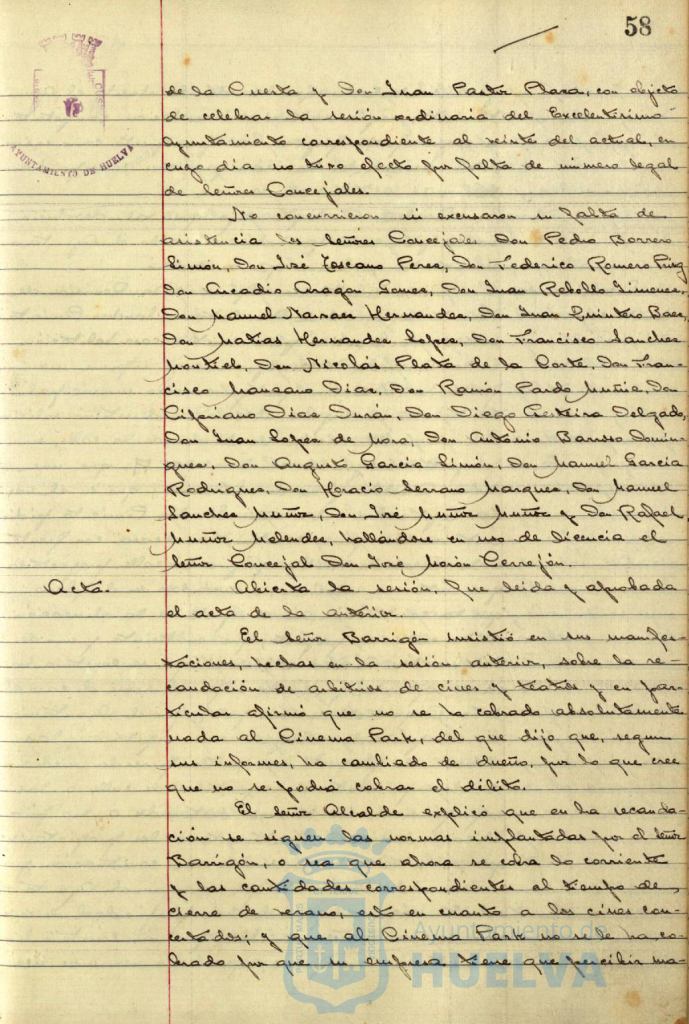 58
AYUNTAMIENTO DE HUELVA
de la Cuesta y Don Juan Pastor Plaza, con objeto
de celebrar la sesión ordinaria del Excelentísimo
Ayuntamiento correspondiente al veinte del actual, en
cuyo día no tuvo efecto por falta de número legal
de Señores Concejales.
No concurrieron ni excusaron su falta de
asistencia los Señores Concejales Don Pedro Borrero
Limón, Don José Toscano Perez, Don Federico Romero Puig
Don Arcadio Aragón Gomez, Don Juan Rebollo Jimenez,
Don Manuel Narvaez Hernandez, Don Juan Quintero Baez,
Don Matías Hernandez Lopez, Don Francisco Sanchez
Montiel, Don Nicolás Plata de la Corte, Don Fran-
cisco Manzano Diaz, Don Ramón Pardo Muñiz, Don
Cipriano Diaz Durán, Don Diego Delgado,
Don Juan Lopez de Mora, Don António Barroso Domin-
guez, Don Augusto García Limón, Don Manuel García
Rodriguez, Don Horacio Serrano Marquez, Don Manuel
Sanchez Muñoz, Don José Muñoz Muñoz y Don Rafael
Muñoz Melendez, hallándose en uso de licencia el
Señor Concejal Don José Morón Cerrejón.
Acta.
Abierta la sesión, fue leida y aprobada
el acta de la anterior.
El Señor Barrigón insistió en sus manifes-
taciones, hechas en la sesión anterior, sobre la re-
caudación de arbitrios de cines y teatros y en par-
ticular afirmó que no se ha cobrado absolutamente
nada al Cinema Park, del que dijo que, segun
sus informes, ha cambiado de dueño, por lo que cree
que no se podrá cobrar el débito.
El Señor Alcalde explicó que en la recauda-
ción se siguen las normas implantadas por el Señor
Barrigón, o sea que ahora se cobra lo corriente
y las cantidades correspondientes al tiempo de
cierre de verano, esto en cuanto a los cines con-
certados; y que al Cinema Park no se le ha co-
brado por que su empresa tiene que percibir ma-
Ayuntamiento de
HUELVA